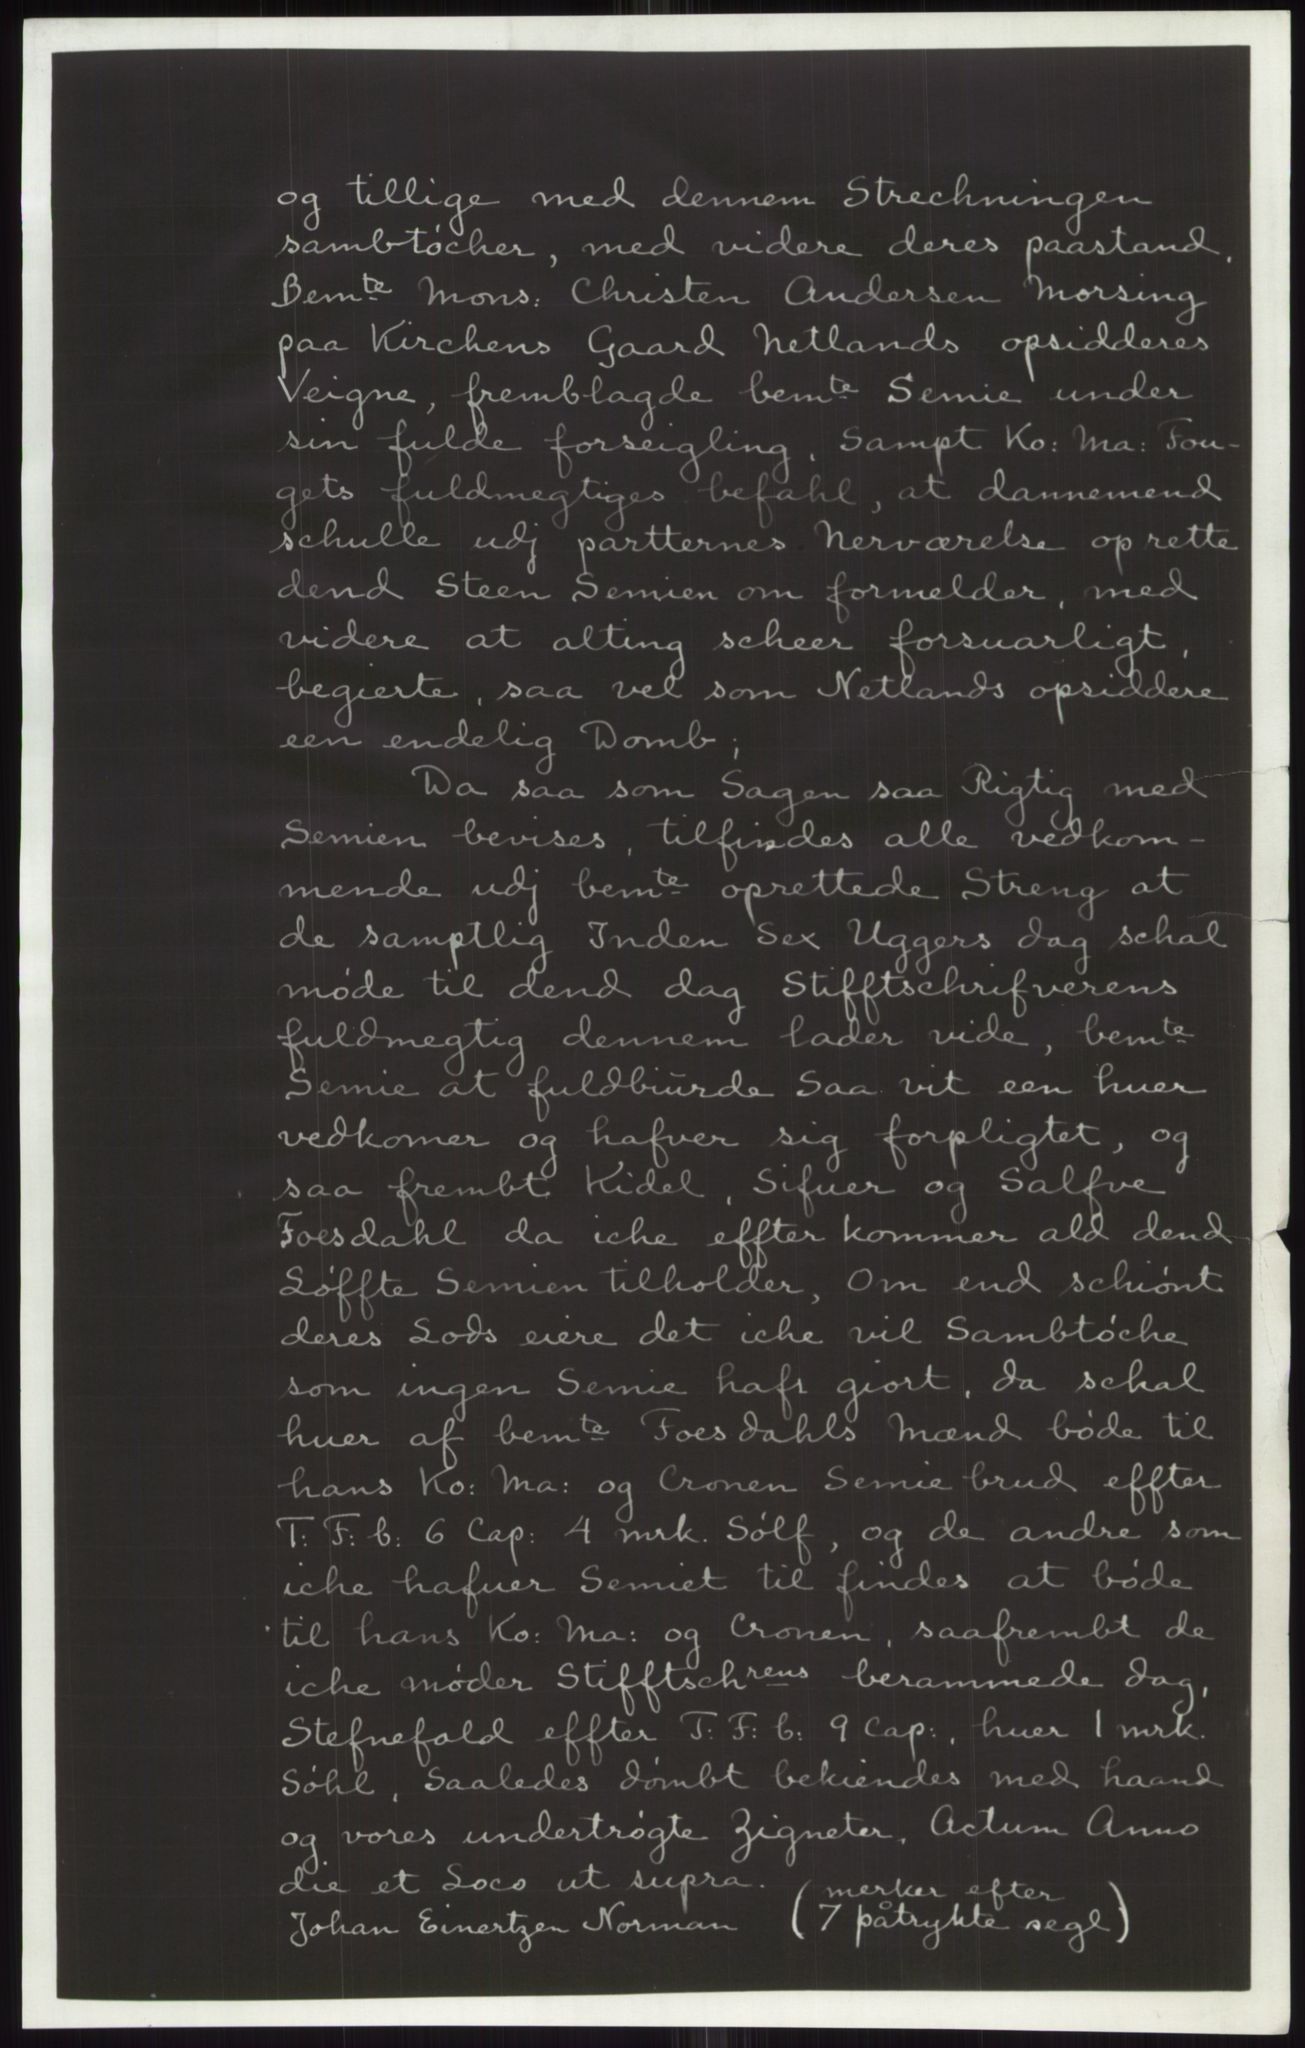 og tillige med dennem Strechningen
sambtócher, med videre deres paastand.
Bemte Mons: Christen Andersen Morsing
paa Kirchens Gaard Netlands opsidderes
Veigne, fremblagde bemte Semie under
sin fulde forseigling. Sampt Ko: Ma: Fou-
gets fuldmegtiges befahl, at dannemend
schulle udj partternes Nerværelse oprette
dend Steen Semien om formelder, med
videre at alting scheer forsuarligt,
begierte, saa vel som Netlands opsiddere
een endelig Domb;
Da saa som Sagen saa Rigtig med
Semien bevises, tilfindes alle vedkom-
mende udj bemte oprettede Streng at
de samptlig Inden Sex Uggers dag schal
møde til dend dag Stifftschrifverens
fuldmegtig dennem lader vide, bemte
Semie at fuldbiurde Saa vit een huer
vedkomer og hafver sig forpligtet, og
saa frembt Kidel, Sifuer og Salfve
Foesdahl da iche effter kommer ald dend
Løffte Semien tilholder, Om end schiønt
deres Lods eiere det iche vil Sambtóche
som ingen Semie hafr giort, da schal
huer af bemte Foesdahls Mænd bøde til
hans Ko: Ma: og Cronen Semie brud effter
T: F: b: 6 Cap: 4 mrk. Sólf, og de andre som
iche hafuer Semiet til findes at bóde
til hans Ko: Ma: og Cronen, saafrembt de
iche møder Stifftschrens berammede dag,
Stefnefald effter T: F: b: 9 Cap:, huer 1 mrk.
Sóhl, Saaledes dómbt bekiendes med haand
og vores undertrøgte Zigneter, Actum Anno
die et Loco ut supra. (merker efter
Johan Einertzen Norman 7 påtrykte segl)